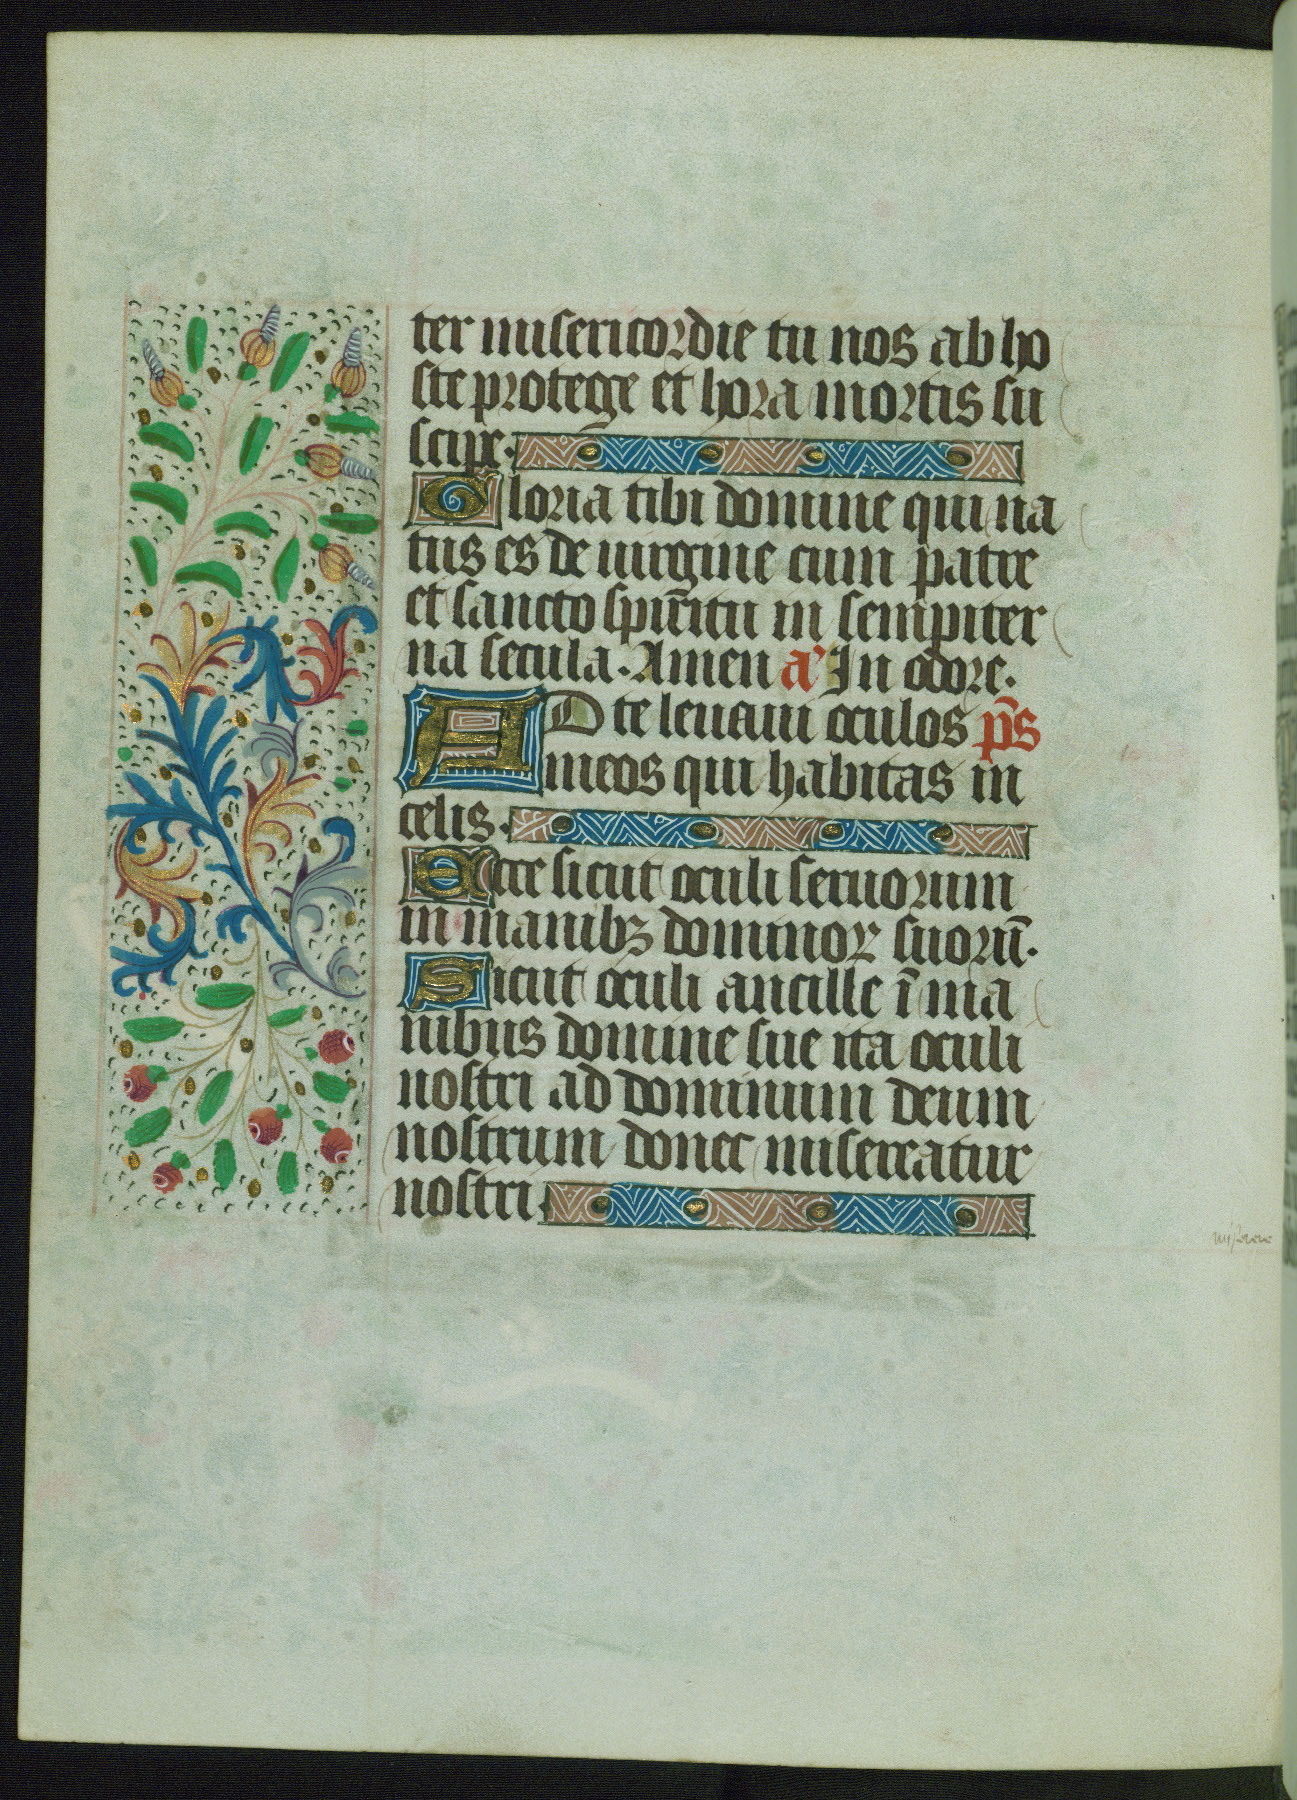 ter misericordie tu nos ab ho
ste protege et hora mortis su
scipe.
Gloria tibi domine qui na
tus es de uirgine cum patre
et sancto spiritu in sempiter
na secula. Amen a' In odore.
AD te leuaui oculos ps
meos qui habitas in
celis.
Ecce sicut oculi seruorum
in manibꝫ dominoꝝ suorū.
Sicut oculi ancille ī ma
nibus domine sue ita oculi
nostri ad dominum deum
nostrum donec misereatur
nostri.